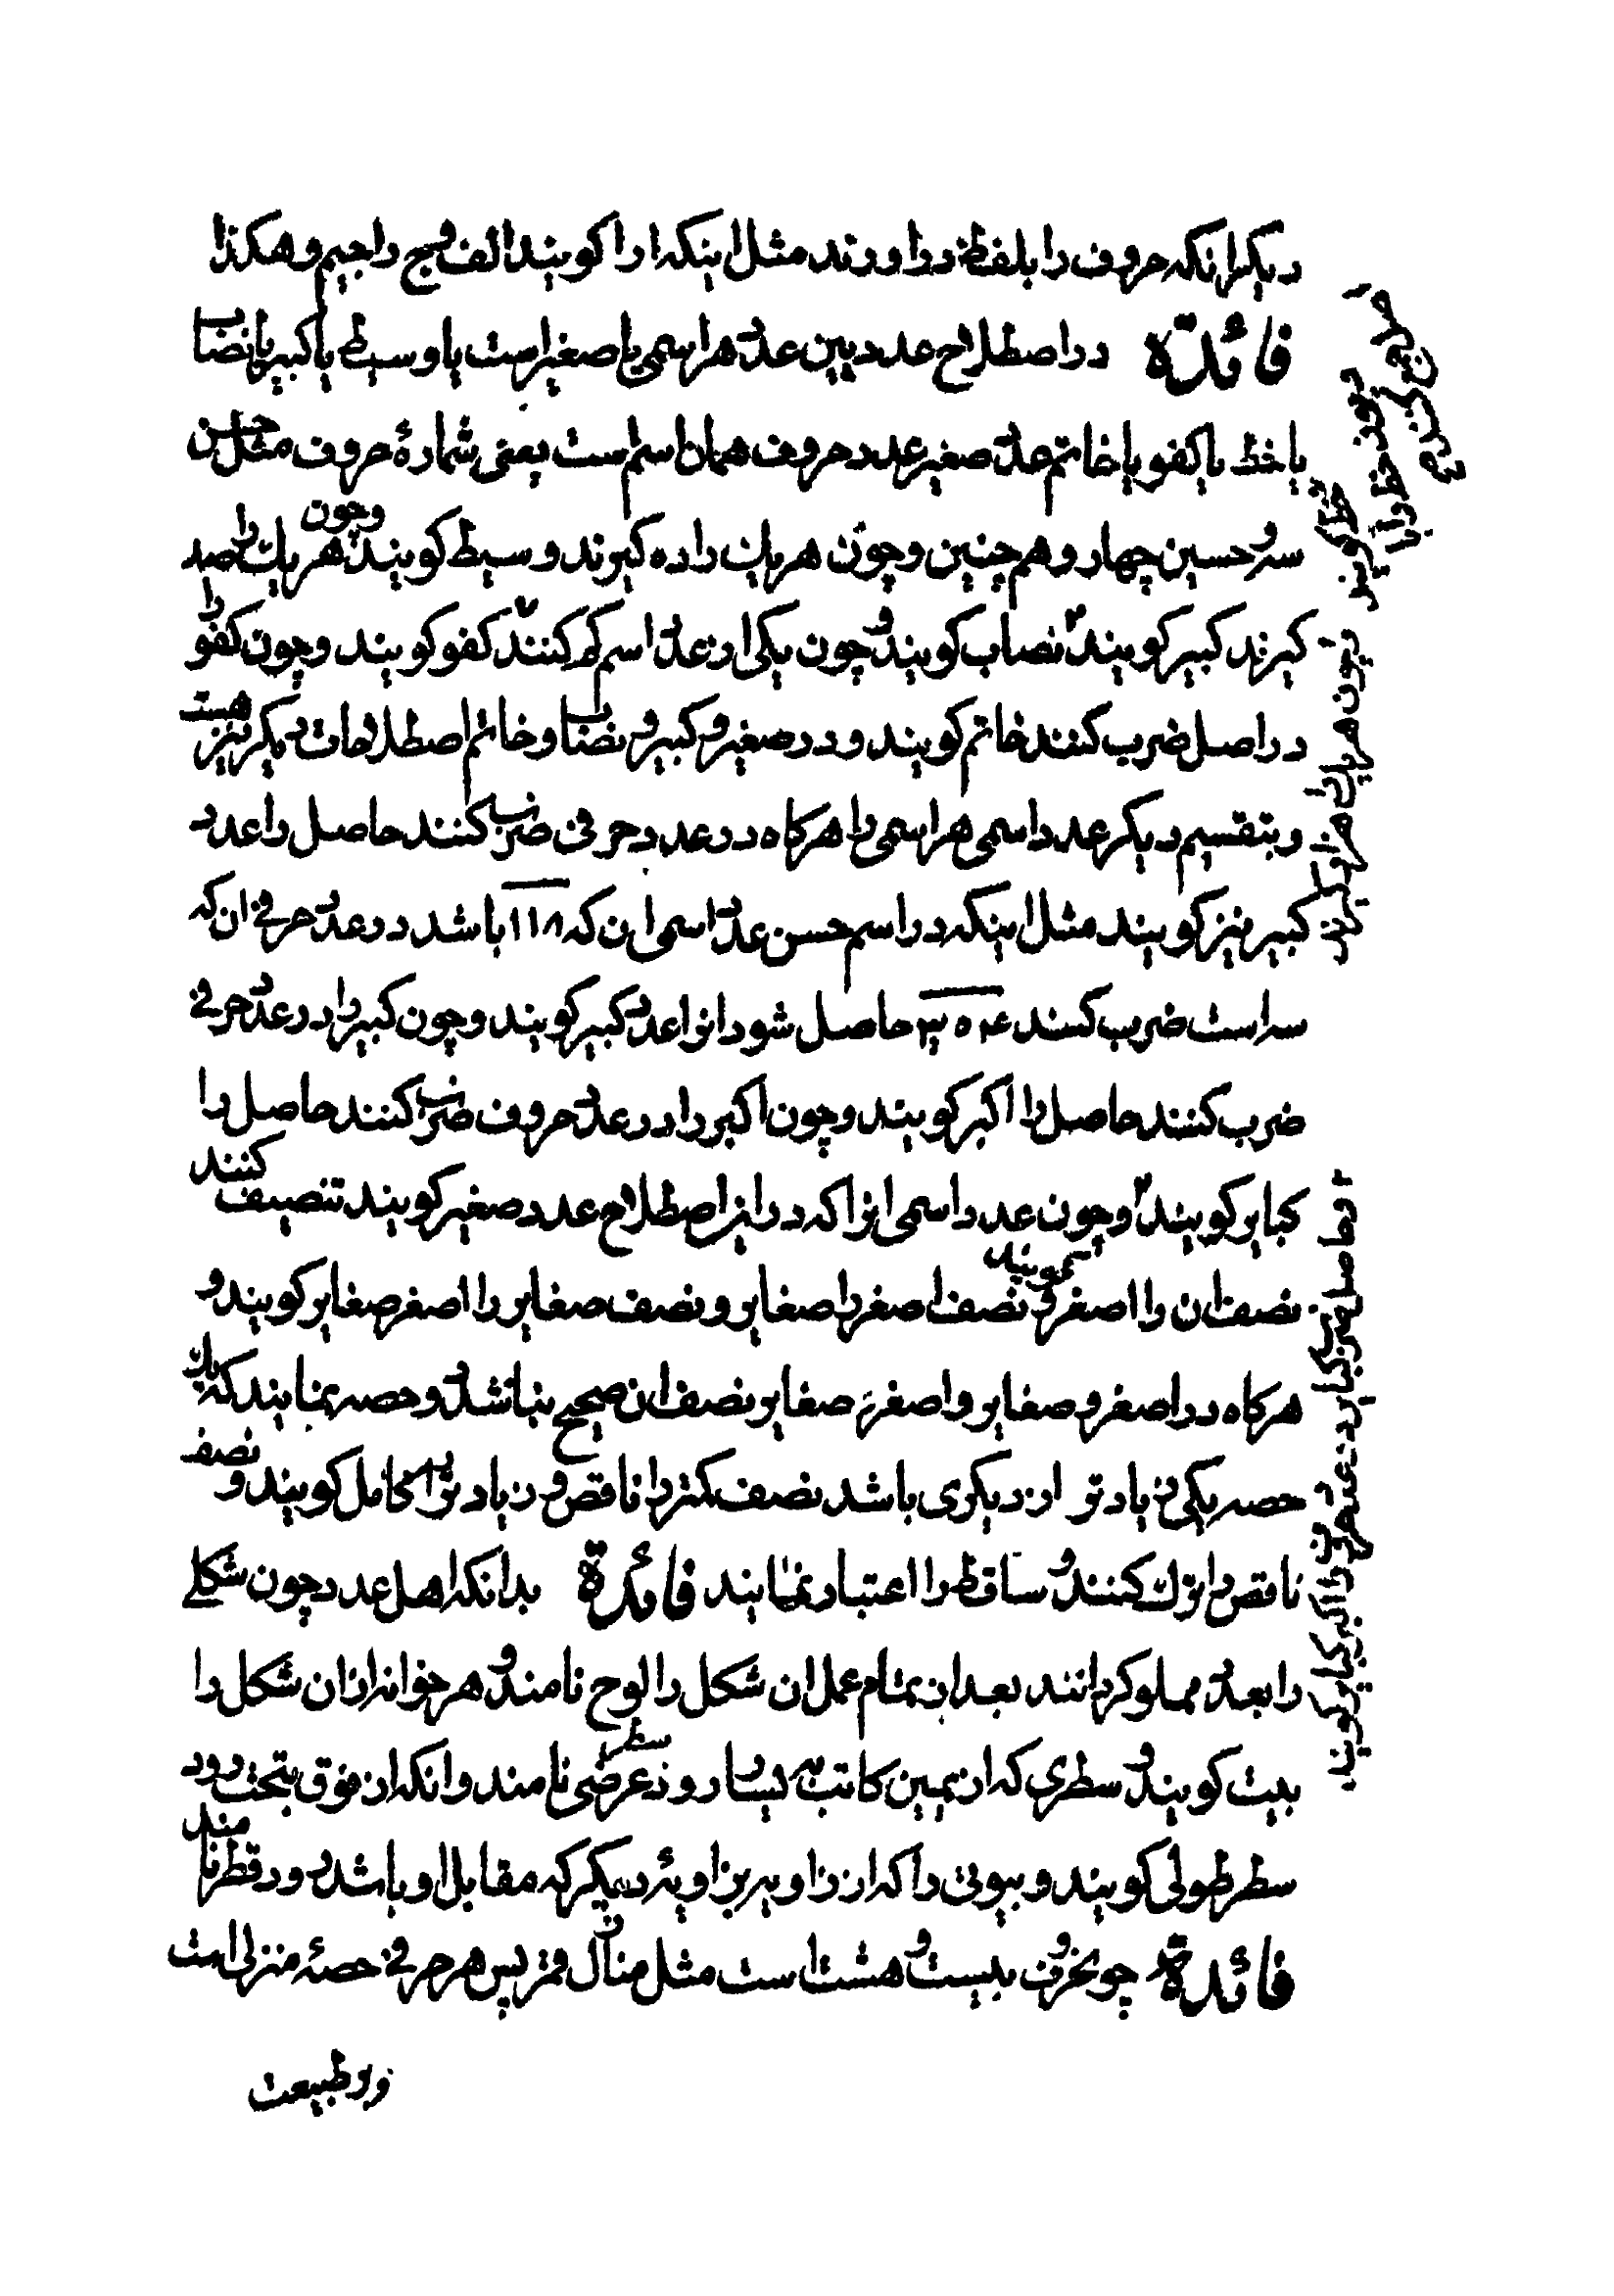 دیکر انکه حروف را بلفظ دراورند مثل اینکه ا را کویند الف و ج را جیم و هکذا
فائدة در اصطلاح عددیین عدد هر اسمی یا صغیر است یا وسیط یا کبیر یا نصاب
یا خط یا کفو یا خاتم عدد صغیر عدد حروف همان اسم است یعنی شمارهٔ حروف مثل حسن
سه و حسین چهار و هم چنین و چون هر یک را ده کیرند وسیط کویند و چون هر یک را صد
کیرند کبیر کویند نصاب کویند و چون یکی از عدد اسم کم کنند کفو کویند و چون کفو را
در اصل ضرب کنند خاتم کویند و در صغیر و کبیر و نصاب و خاتم اصطلاحات دیکر نیز هست
و بتقسیم دیکر عدد اسمی هر اسمی را هرکاه در عدد حرفی ضرب کنند حاصل را عدد
کبیر نیز کویند مثل اینکه در اسم حسن عدد اسمی ان که ۱۱۸ باشد در عدد حرفی ان که
سه است ضرب کنند ۳۵۴ حاصل شود انرا عدد کبیر کویند و چون کبیر را در عدد حرفی
ضرب کنند حاصل را اکبر کویند و چون اکبر را در عدد حروف ضرب کنند حاصل را
کبایر کویند و چون عدد اسمی انرا که در این اصطلاح عدد صغیر کویند تنصیف کنند
نصف ان را اصغر کویند و نصف اصغر را صغایر و نصف صغایر را اصغر صغایر کویند و
هرکاه در اصغر و صغایر و اصغر صغایر نصف ان صحیح نباشد دو حصه نمایند که یک
حصه یکی زیادتر از دیکری باشد نصف کمتر را ناقص و زیادتر را کامل کویند و نصف
ناقص را ترک کنند و ساقط را اعتبار ننمایند فائدة بدانکه اهل عدد چون شکلی
را بعدد مملو کردانند بعد از تمام عمل ان شکل را لوح نامند و هر خوانه از ان شکل را
بیت کویند و سطری که از یمین کاتب به یسار رود سطر عرضی نامند و انکه از فوق بتحت رود
سطر طولی کویند و بیوتی را که از زاویه بزاویهٔ دیکر که مقابل او باشد رود قطر نامند
فائدة چون حروف بیست و هشت است مثل منازل قمر پس هر حرفی حصهٔ منزلی است
و بر طبیعت
چون هر یک را هزار کیرند
و حاصل ضرب کبایر در عدد حروف را اکبر کبایر کویند